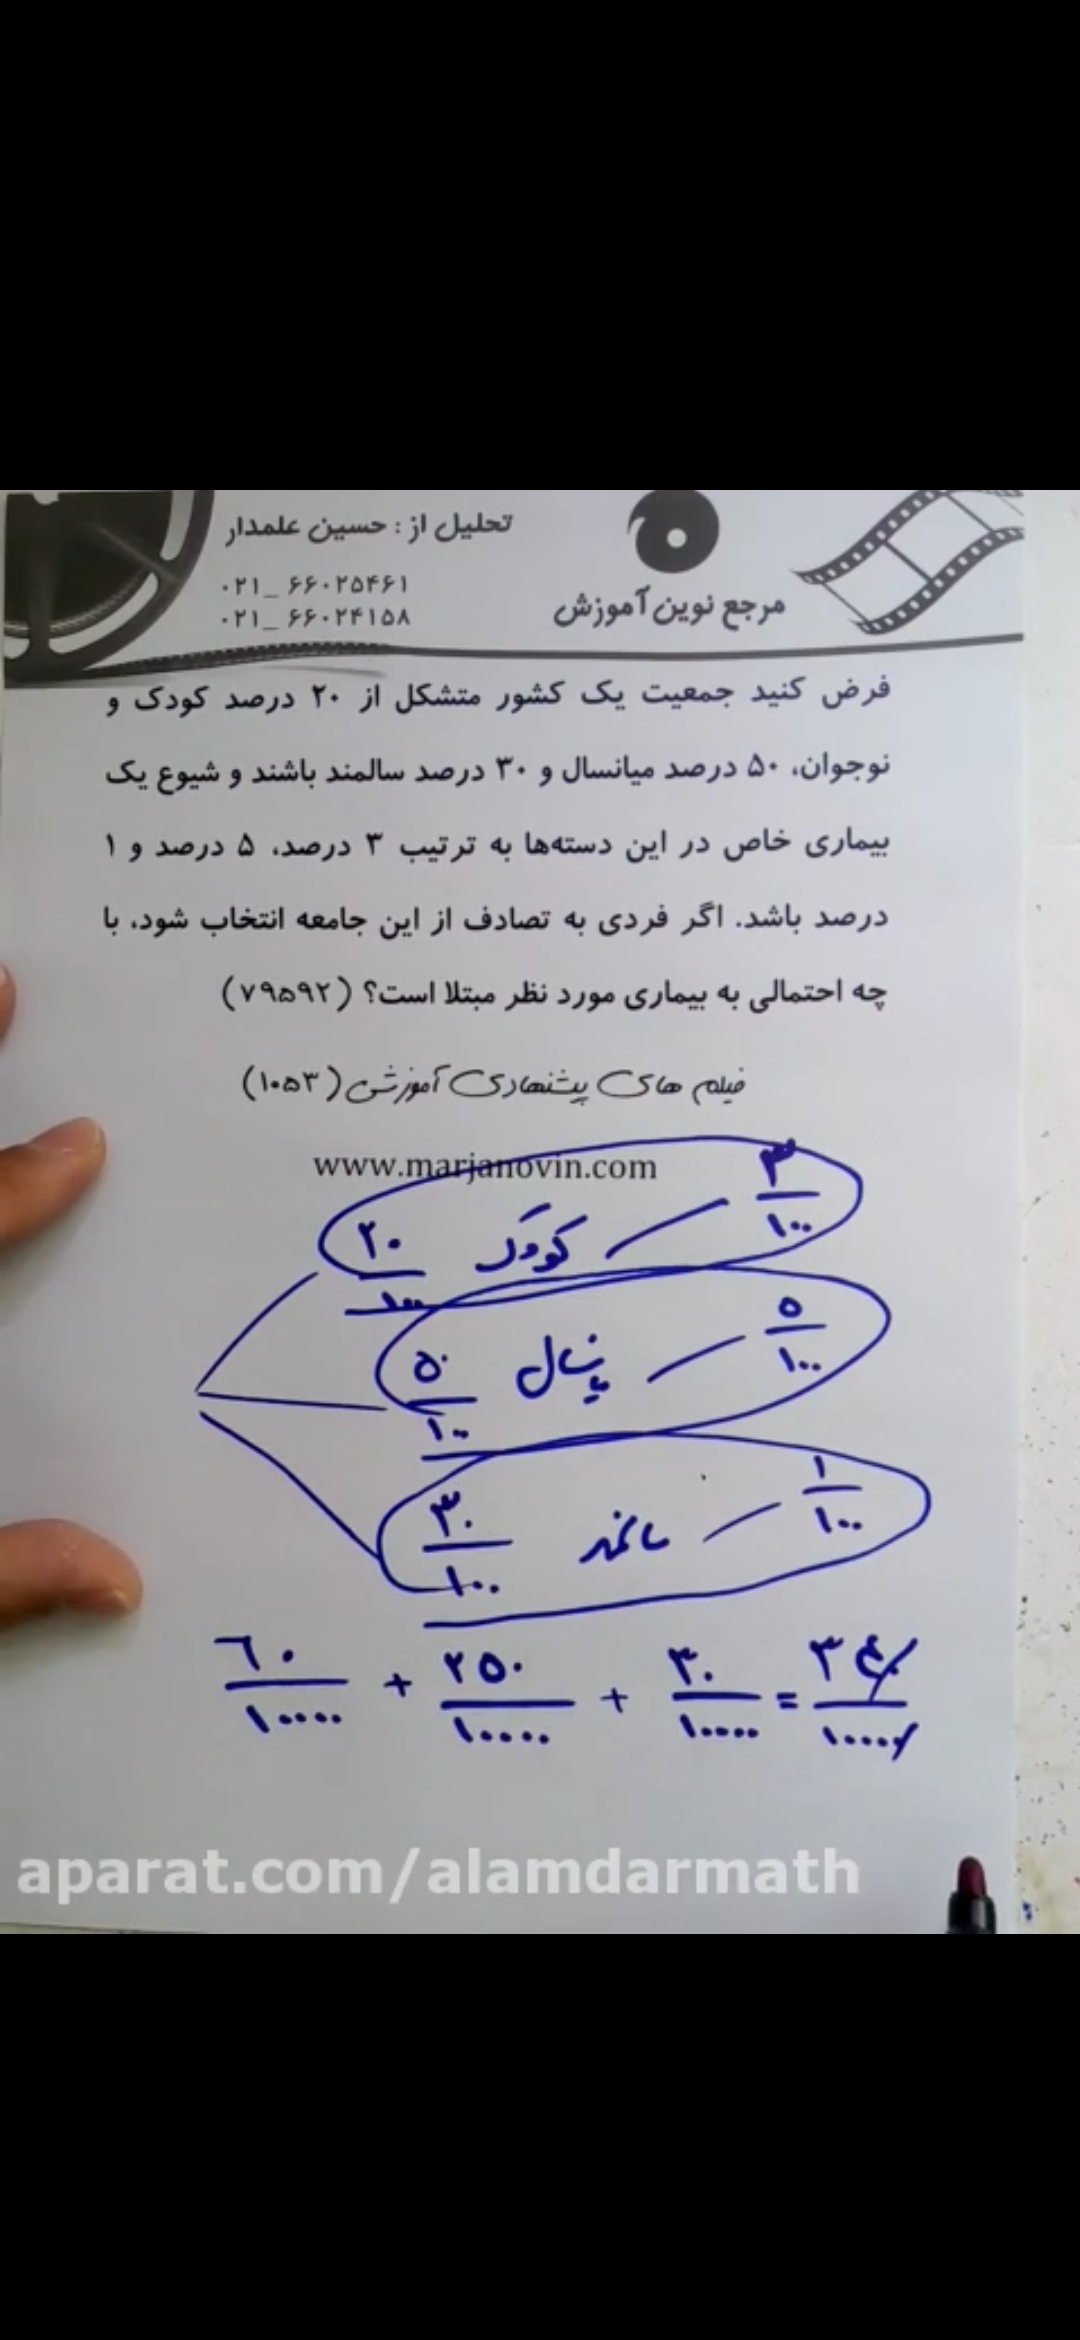 تحلیل از : حسین علمدار
۰۲۱_ ۶۶۰۲۵۴۶۱
۰۲۱_ ۶۶۰۲۴۱۵۸
مرجع نوین آموزش
فرض کنید جمعیت یک کشور متشکل از ۲۰ درصد کودک و
نوجوان، ۵۰ درصد میانسال و ۳۰ درصد سالمند باشند و شیوع یک
بیماری خاص در این دسته‌ها به ترتیب ۳ درصد، ۵ درصد و ۱
درصد باشد. اگر فردی به تصادف از این جامعه انتخاب شود، با
چه احتمالی به بیماری مورد نظر مبتلا است؟ (۷۹۵۹۲)
فیلم های پیشنهادی آموزشی (۱۰۵۳)
www.marjanovin.com
۲۰/۱۰۰ کودک ۳/۱۰۰
۵۰/۱۰۰ ۵/۱۰۰
۳۰/۱۰۰ ۱/۱۰۰
۶۰/۱۰۰۰۰ + ۲۵۰/۱۰۰۰۰ + ۳۰/۱۰۰۰۰ =
aparat.com/alamdarmath